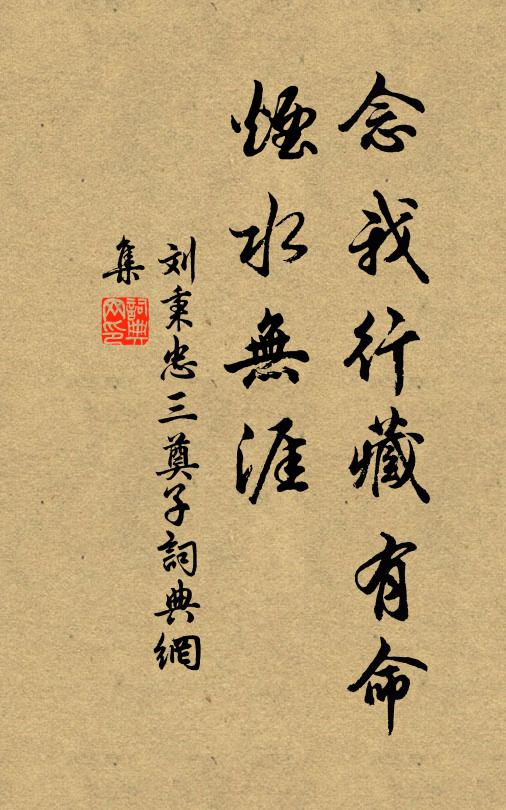 念我行藏有命
煙水無涯
刘秉忠三奠子詞典網
集
詞典網印